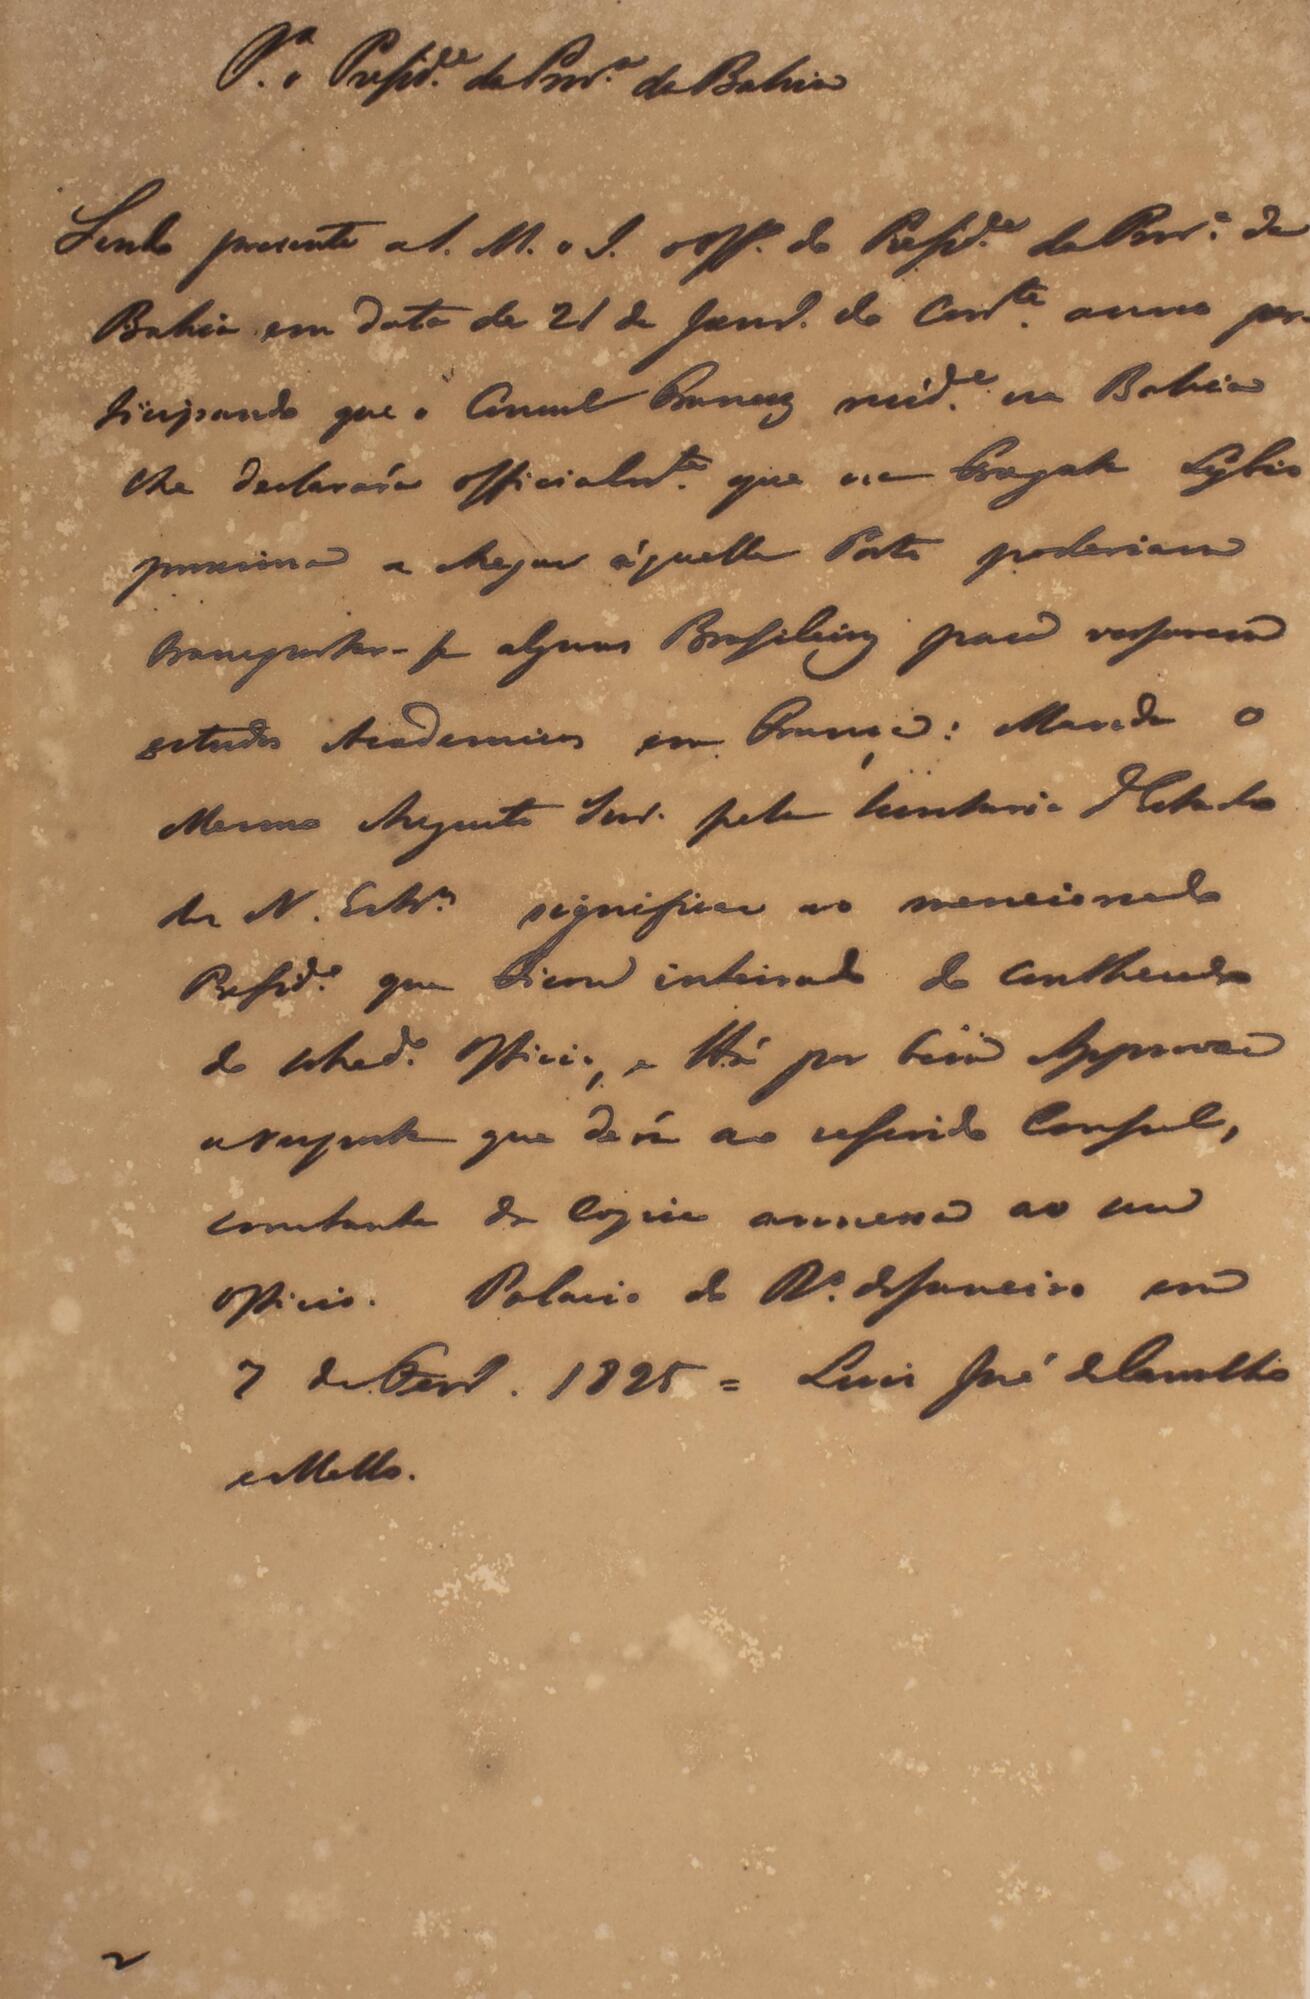 P.ª o Presid.e da Prov.ª da Bahia
Sendo presente a S. M. o I. o Off.º do Presid.e da Prov.ª da
Bahia em data de 21 de Janr.º do Corr.te anno par-
ticipando que o Consul Francez resid.e na Bahia
lhe declarára officialm.te que na Fragata Lybio
proxima a chegar áquelle Porto poderiam
transportar-se alguns Brasileiros para cursarem
estudos Academicos em França: Manda o
Mesmo Augusto Snr. pela Secretaria d'Estado
dos N. Estr.os significar ao mencionado
Presid.e que ficou inteirado do contheudo
do Officio, e Há por bem Approvar
a resposta que dera ao referido Consul,
constante da Copia annexa ao seu
Officio. Palacio do R.º de Janeiro em
7 de Fevr.º 1825 = Luiz José de Carvalho
e Mello.